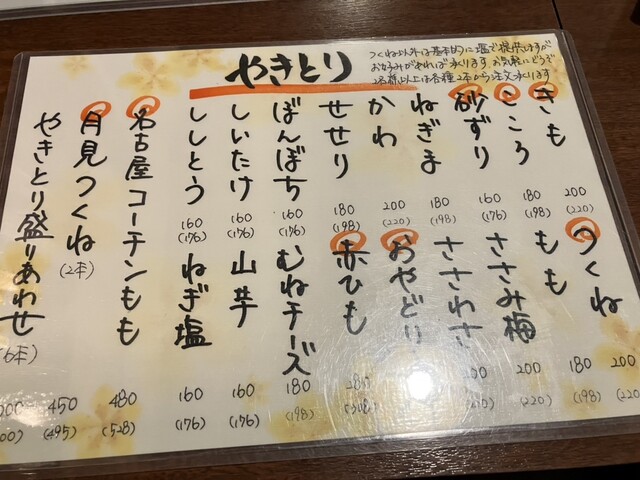 やきとり
つくね以外は基本的に塩で提供しますが
お好みがあれば承ります お気軽にどうぞ
2名様以上は各種2本から注文承ります
きも 200 (220)
こころ 180 (198)
砂ずり 160 (176)
ねぎま 180 (198)
かわ 200 (220)
せせり 180 (198)
ぼんぼち 160 (176)
しいたけ 160 (176)
ししとう 160 (176)
つくね 200 (220)
もも 180 (198)
ささみ梅 200 (220)
ささわさ (220)
おやどり
赤ひも 280 (308)
むねチーズ 180 (198)
山芋 160 (176)
ねぎ塩 160 (176)
名古屋コーチンもも 480 (528)
月見つくね (2本) 450 (495)
やきとり盛りあわせ (6本)